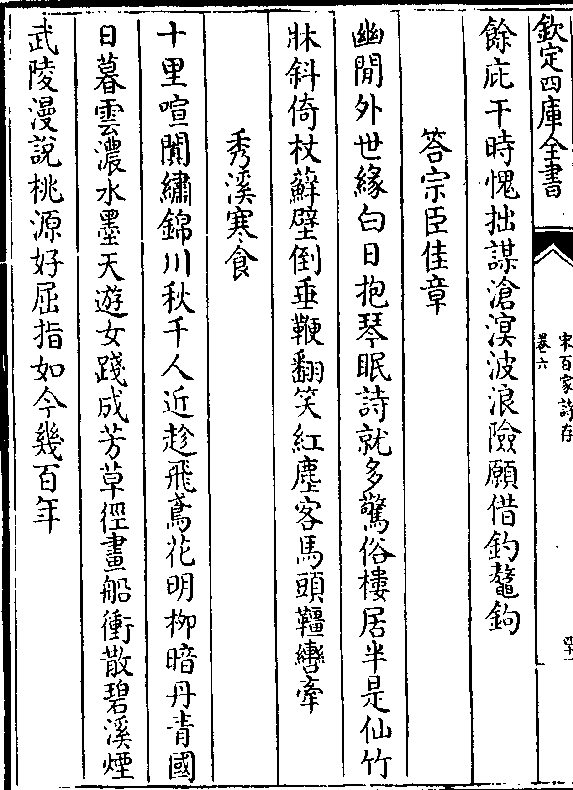 欽定四庫全書
宋百家詩存
卷六
餘庇干時愧拙謀滄溟波浪險願借釣鼇鉤
答宗臣佳章
幽閒外世緣白日抱琴眠詩就多驚俗樓居半是仙竹
牀斜倚杖蘚壁倒垂鞭翻笑紅塵客馬頭韁轡牽
秀溪寒食
十里喧闐繡錦川秋千人近趁飛鳶花明柳暗丹青國
日暮雲濃水墨天遊女踐成芳草徑畫船衝散碧溪煙
武陵漫說桃源好屈指如今幾百年